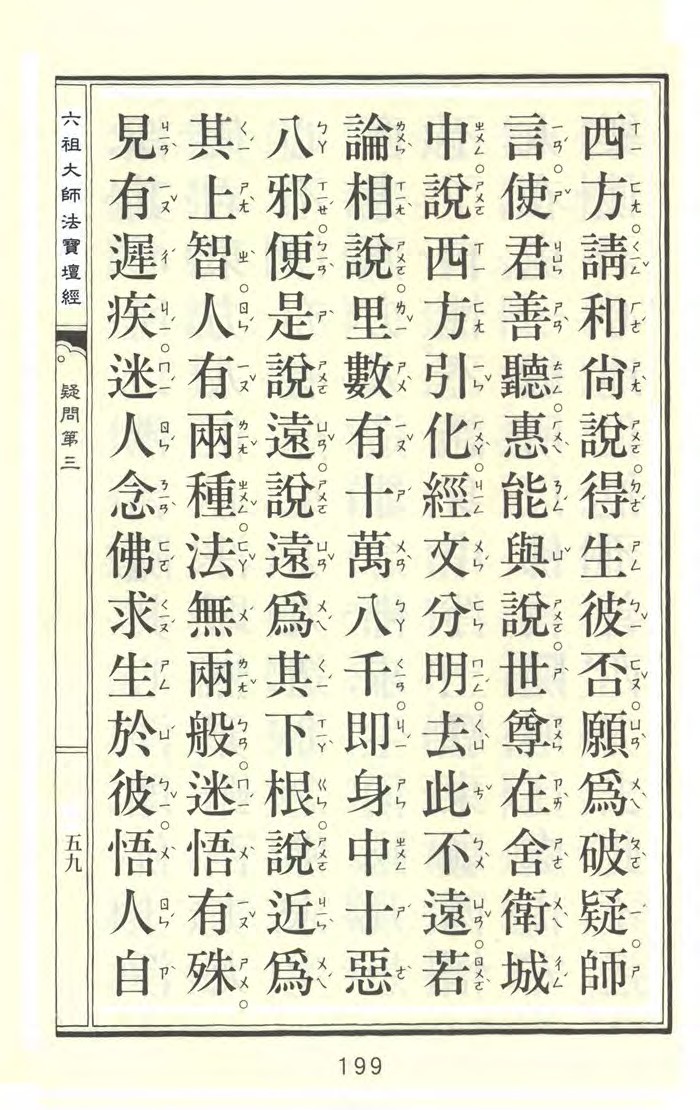 西方請和尚說得生彼否願為破疑師
言使君善聽惠能與說世尊在舍衛城
中說西方引化經文分明去此不遠若
論相說里數有十萬八千即身中十惡
八邪便是說遠說遠為其下根說近為
其上智人有兩種法無兩般迷悟有殊
見有遲疾迷人念佛求生於彼悟人自
六祖大師法寶壇經
疑問第三
五九
199